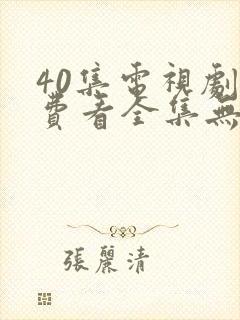 40集電視劇
費看全集無
張麗清